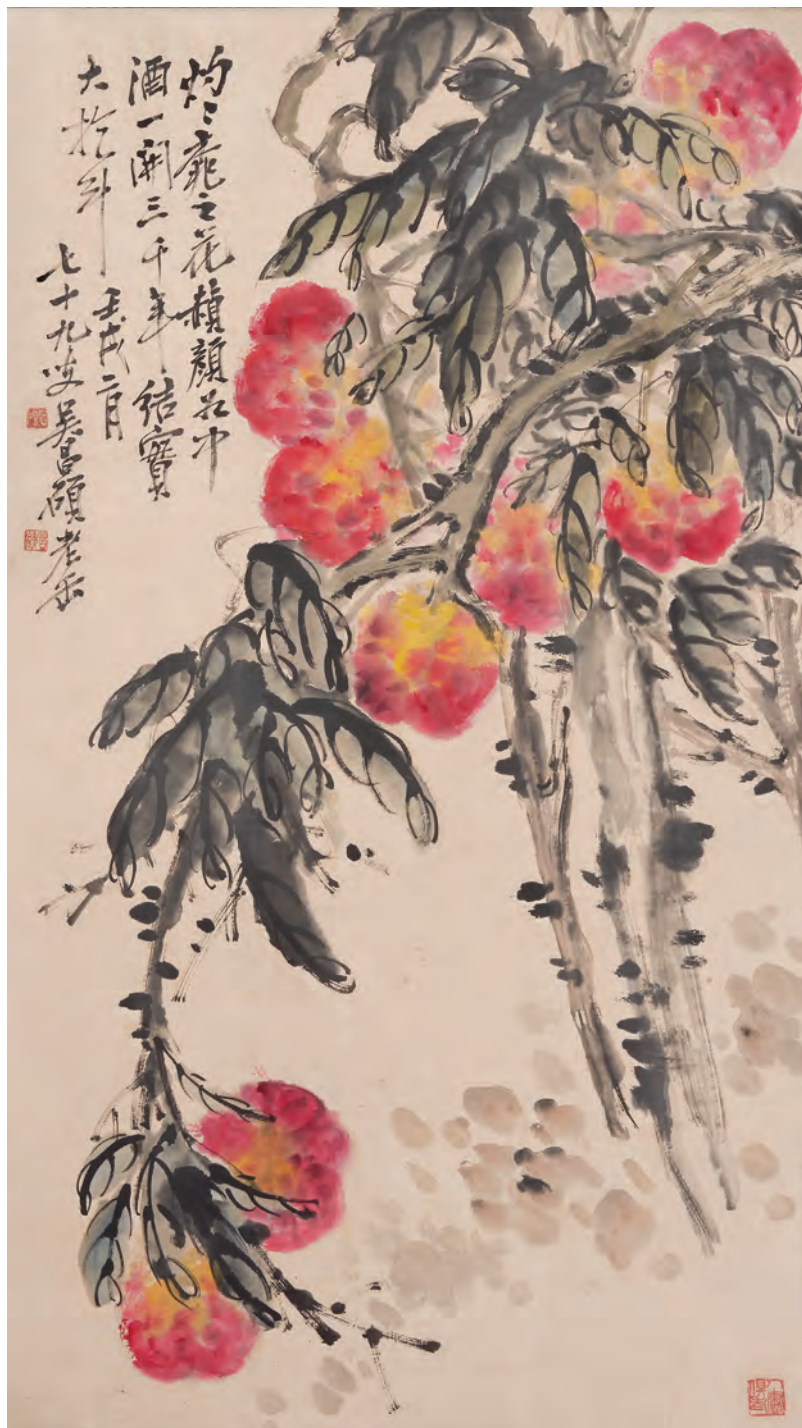 灼〻桃之花赬顏如中
酒一開三千年結實
大於斗 壬戌二月
七十九叟吳昌碩老缶